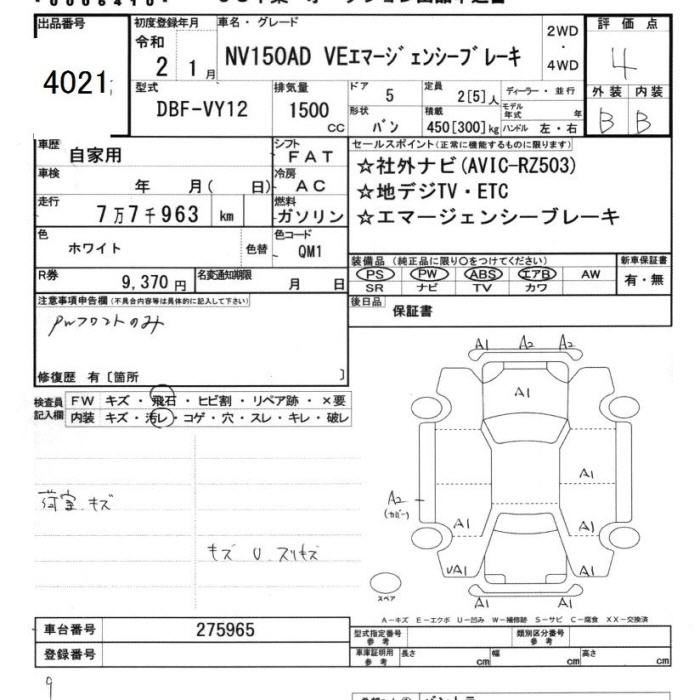 出品番号
4021
初度登録年月
令和
2 1月
車名・グレード
NV150AD VEエマージェンシーブレーキ
2WD
・
4WD
評価点
4
外装 内装
B B
型式
DBF-VY12
排気量
1500
CC
ドア
5
定員
2[5]人
ディーラー・並行
モデル年式 年
形状
バン
積載
450[300]kg
ハンドル 左・右
車歴
自家用
シフト
FAT
車検
年 月( 日)
冷房
AC
走行
7万7千963 km
燃料
ガソリン
色
ホワイト
色替
色コード
QM1
R券
9,370円
名変通知期限
月 日
セールスポイント(正常に機能するものに限ります)
☆社外ナビ(AVIC-RZ503)
☆地デジTV・ETC
☆エマージェンシーブレーキ
装備品(純正品に限り○をつけてください)
PS PW ABS エアB AW
SR ナビ TV カワ
新車保証書
有・無
後日品
保証書
注意事項申告欄(不具合内容等は具体的に記入して下さい)
PWフロントのみ
修復歴 有〔箇所 〕
検査員
記入欄
FW キズ・飛石・ヒビ割・リペア跡・×要
内装 キズ・汚レ・コゲ・穴・スレ・キレ・破レ
荷室.キズ
キズ U スリキズ
A1 A2 A2
A1
A1
A2
(カバー)
A1 A1
UA1 A1
A1
スペア
A-キズ E-エクボ U-凹み W-補修跡 S-サビ C-腐食 XX-交換済
車台番号
275965
登録番号
型式指定番号
参考
類別区分番号
参考
車庫証明用
参考
長さ cm
幅 cm
高さ cm
9